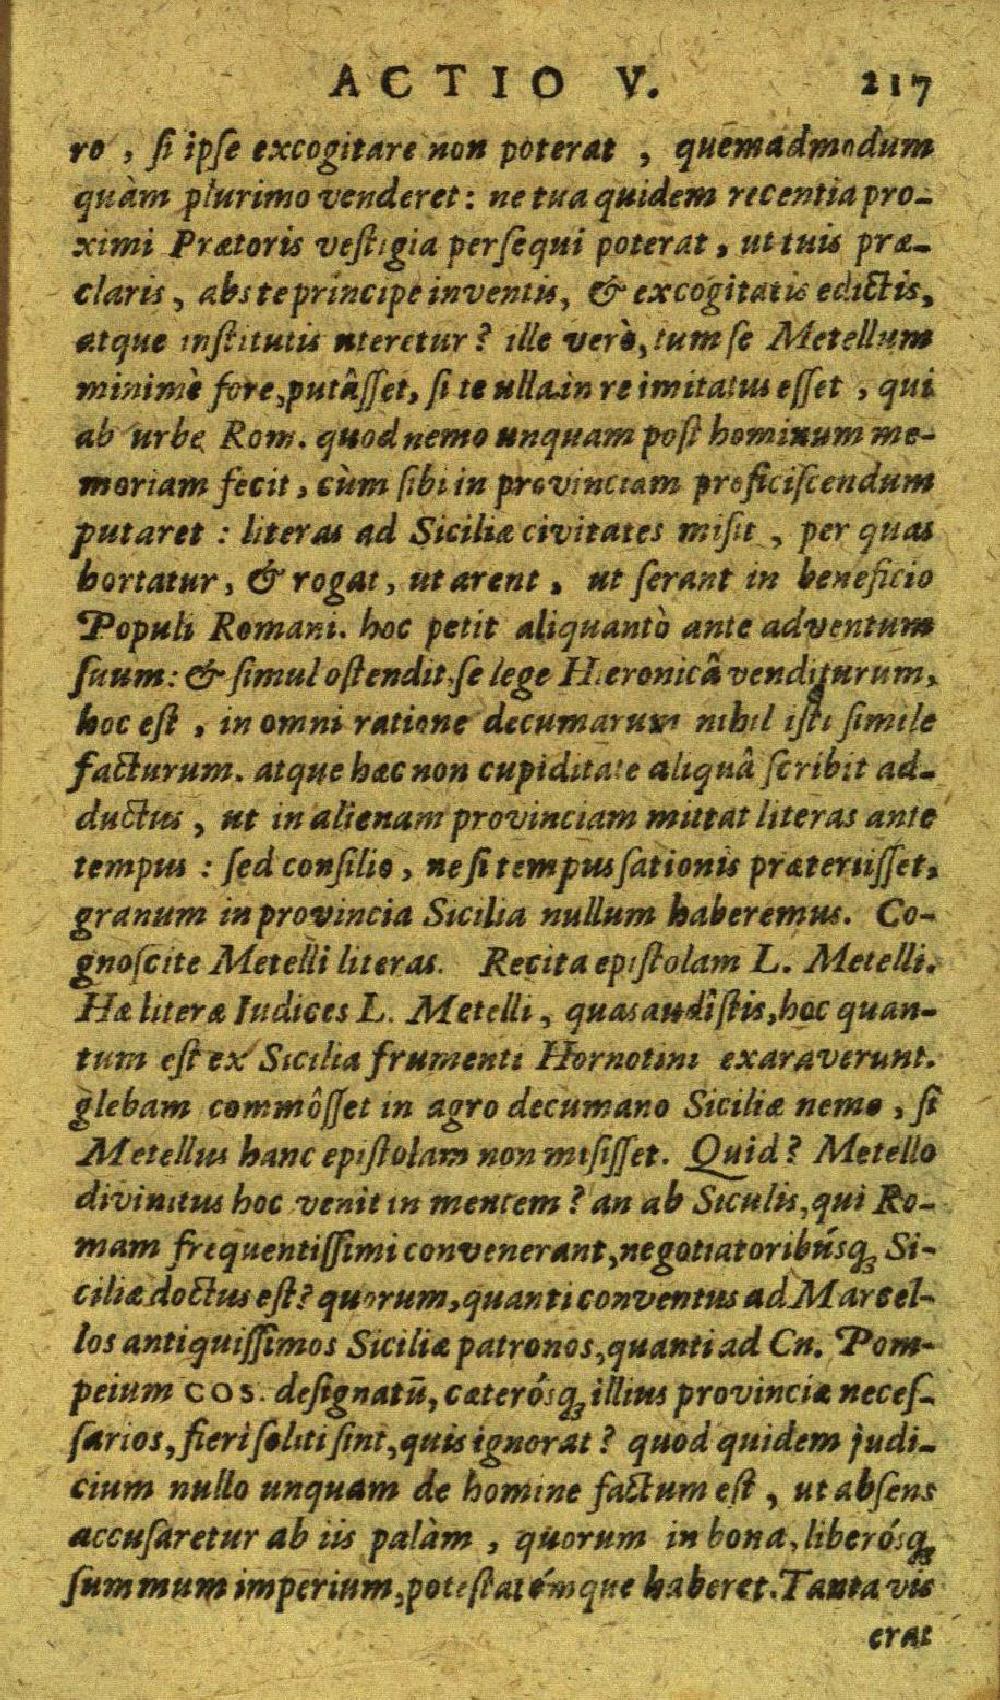 ACTIO V. 217
ro, si ipse excogitare non poterat, quemadmodum
quàm plurimo venderet: ne tua quidem recentia pro-
ximi Prætoris vestigia persequi poterat, ut tuis præ-
claris, abs te principe inventis, & excogitatis edictis,
atque institutis uteretur? ille verò, tum se Metellum
minimè fore, putâsset, si te ulla in re imitatus esset, qui
ab urbe Rom. quod nemo unquam post hominum me-
moriam fecit, cùm sibi in provinciam proficiscendum
putaret: literas ad Siciliæ civitates misit, per quas
hortatur, & rogat, ut arent, ut serant in beneficio
Populi Romani. hoc petit aliquantò ante adventum
suum: & simul ostendit, se lege Hieronicâ venditurum,
hoc est, in omni ratione decumarum nihil isti simile
facturum. atque hæc non cupiditate aliquâ scribit ad-
ductus, ut in alienam provinciam mittat literas ante
tempus: sed consilio, ne si tempus sationis præteriisset,
granum in provincia Sicilia nullum haberemus. Co-
gnoscite Metelli literas. Recita epistolam L. Metelli.
Hæ literæ Iudices L. Metelli, quas audîstis, hoc quan-
tum est ex Sicilia frumenti Hornotini exaraverunt.
glebam commôsset in agro decumano Siciliæ nemo, si
Metellus hanc epistolam non misisset. Quid? Metello
divinitus hoc venit in mentem? an ab Siculis, qui Ro-
mam frequentissimi convenerant, negotiatoribúsq; Si-
ciliæ doctus est? quorum, quanti conventus ad Marcel-
los antiquissimos Siciliæ patronos, quanti ad Cn. Pom-
peium COS. designatū, cæterósq; illius provinciæ neces-
sarios, fieri soliti sint, quis ignorat? quod quidem judi-
cium nullo unquam de homine factum est, ut absens
accusaretur ab iis palàm, quorum in bona, liberósq;
summum imperium, potestatémque haberet. Tanta vis
erat